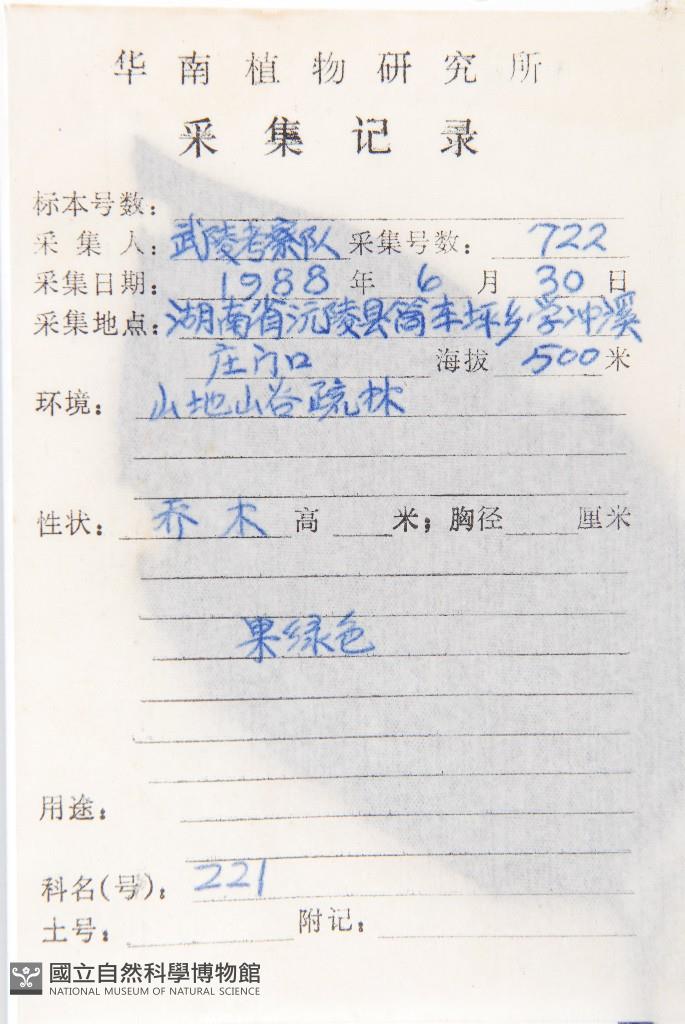 华南植物研究所
采集记录
标本号数:
采集人: 武陵考察队 采集号数: 722
采集日期: 1988 年 6 月 30 日
采集地点: 湖南省沅陵县筒车坪乡学冲溪
庄门口 海拔 500 米
环境: 山地山谷疏林
性状: 乔木 高 米; 胸径 厘米
果绿色
用途:
科名(号): 221
土号: 附记:
國立自然科學博物館
NATIONAL MUSEUM OF NATURAL SCIENCE